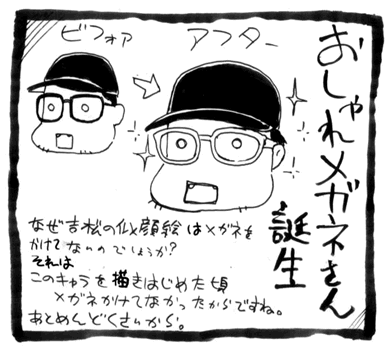 おしゃれメガネさん
誕生
ビフォア
アフター
なぜ吉松の似顔絵はメガネを
かけてないのでしょうか?
それは
このキャラを描きはじめた頃
メガネかけてなかったからですね。
あとめんどくさいから。